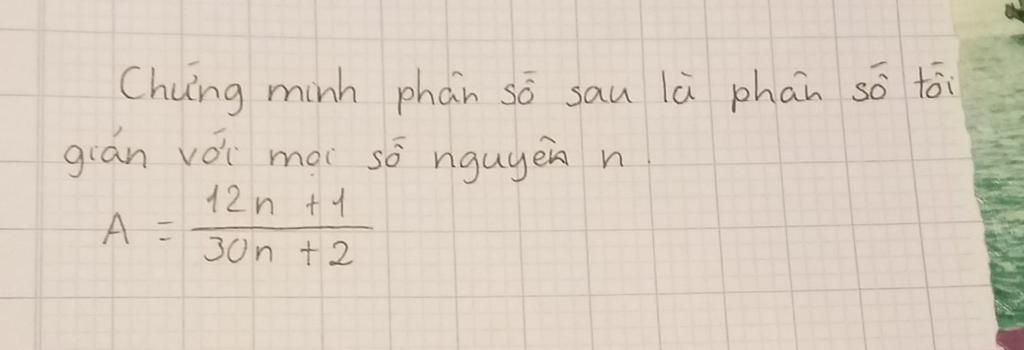 Chứng minh phân số sau là phân số tối
giản với mọi số nguyên n.
A = \frac{12n + 1}{30n + 2}